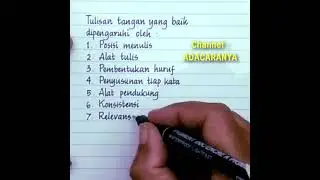 Tulisan tangan yang baik
dipengaruhi oleh :
1. Posisi menulis
2. Alat tulis
3. Pembentukan huruf
4. Penyusunan tiap kata
5. Alat pendukung
6. Konsistensi
7 Relevans
Channel
ADACARANYA